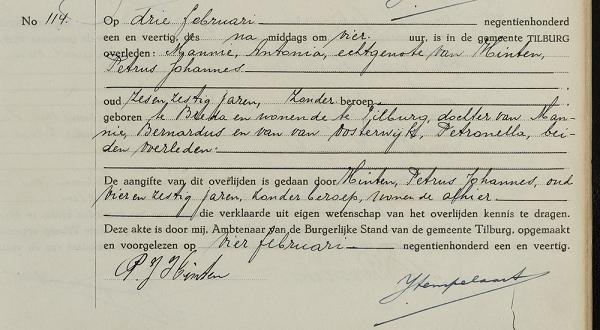 No 114.
Op drie februari negentienhonderd
een en veertig, des na middags om vier uur, is in de gemeente TILBURG
overleden: Mannie, Antonia, echtgenote van Hinten,
Petrus Johannes
oud zesenzestig jaren, zonder beroep
geboren te Breda en wonende te Tilburg, dochter van Man-
nie, Bernardus en van van Oosterwijk, Petronella, bei-
den overleden.
De aangifte van dit overlijden is gedaan door Hinten, Petrus Johannes, oud
vierenzestig jaren, zonder beroep, wonende alhier
die verklaarde uit eigen wetenschap van het overlijden kennis te dragen.
Deze akte is door mij, Ambtenaar van de Burgerlijke Stand van de gemeente Tilburg, opgemaakt
en voorgelezen op vier februari negentienhonderd een en veertig.
P. J. Hinten